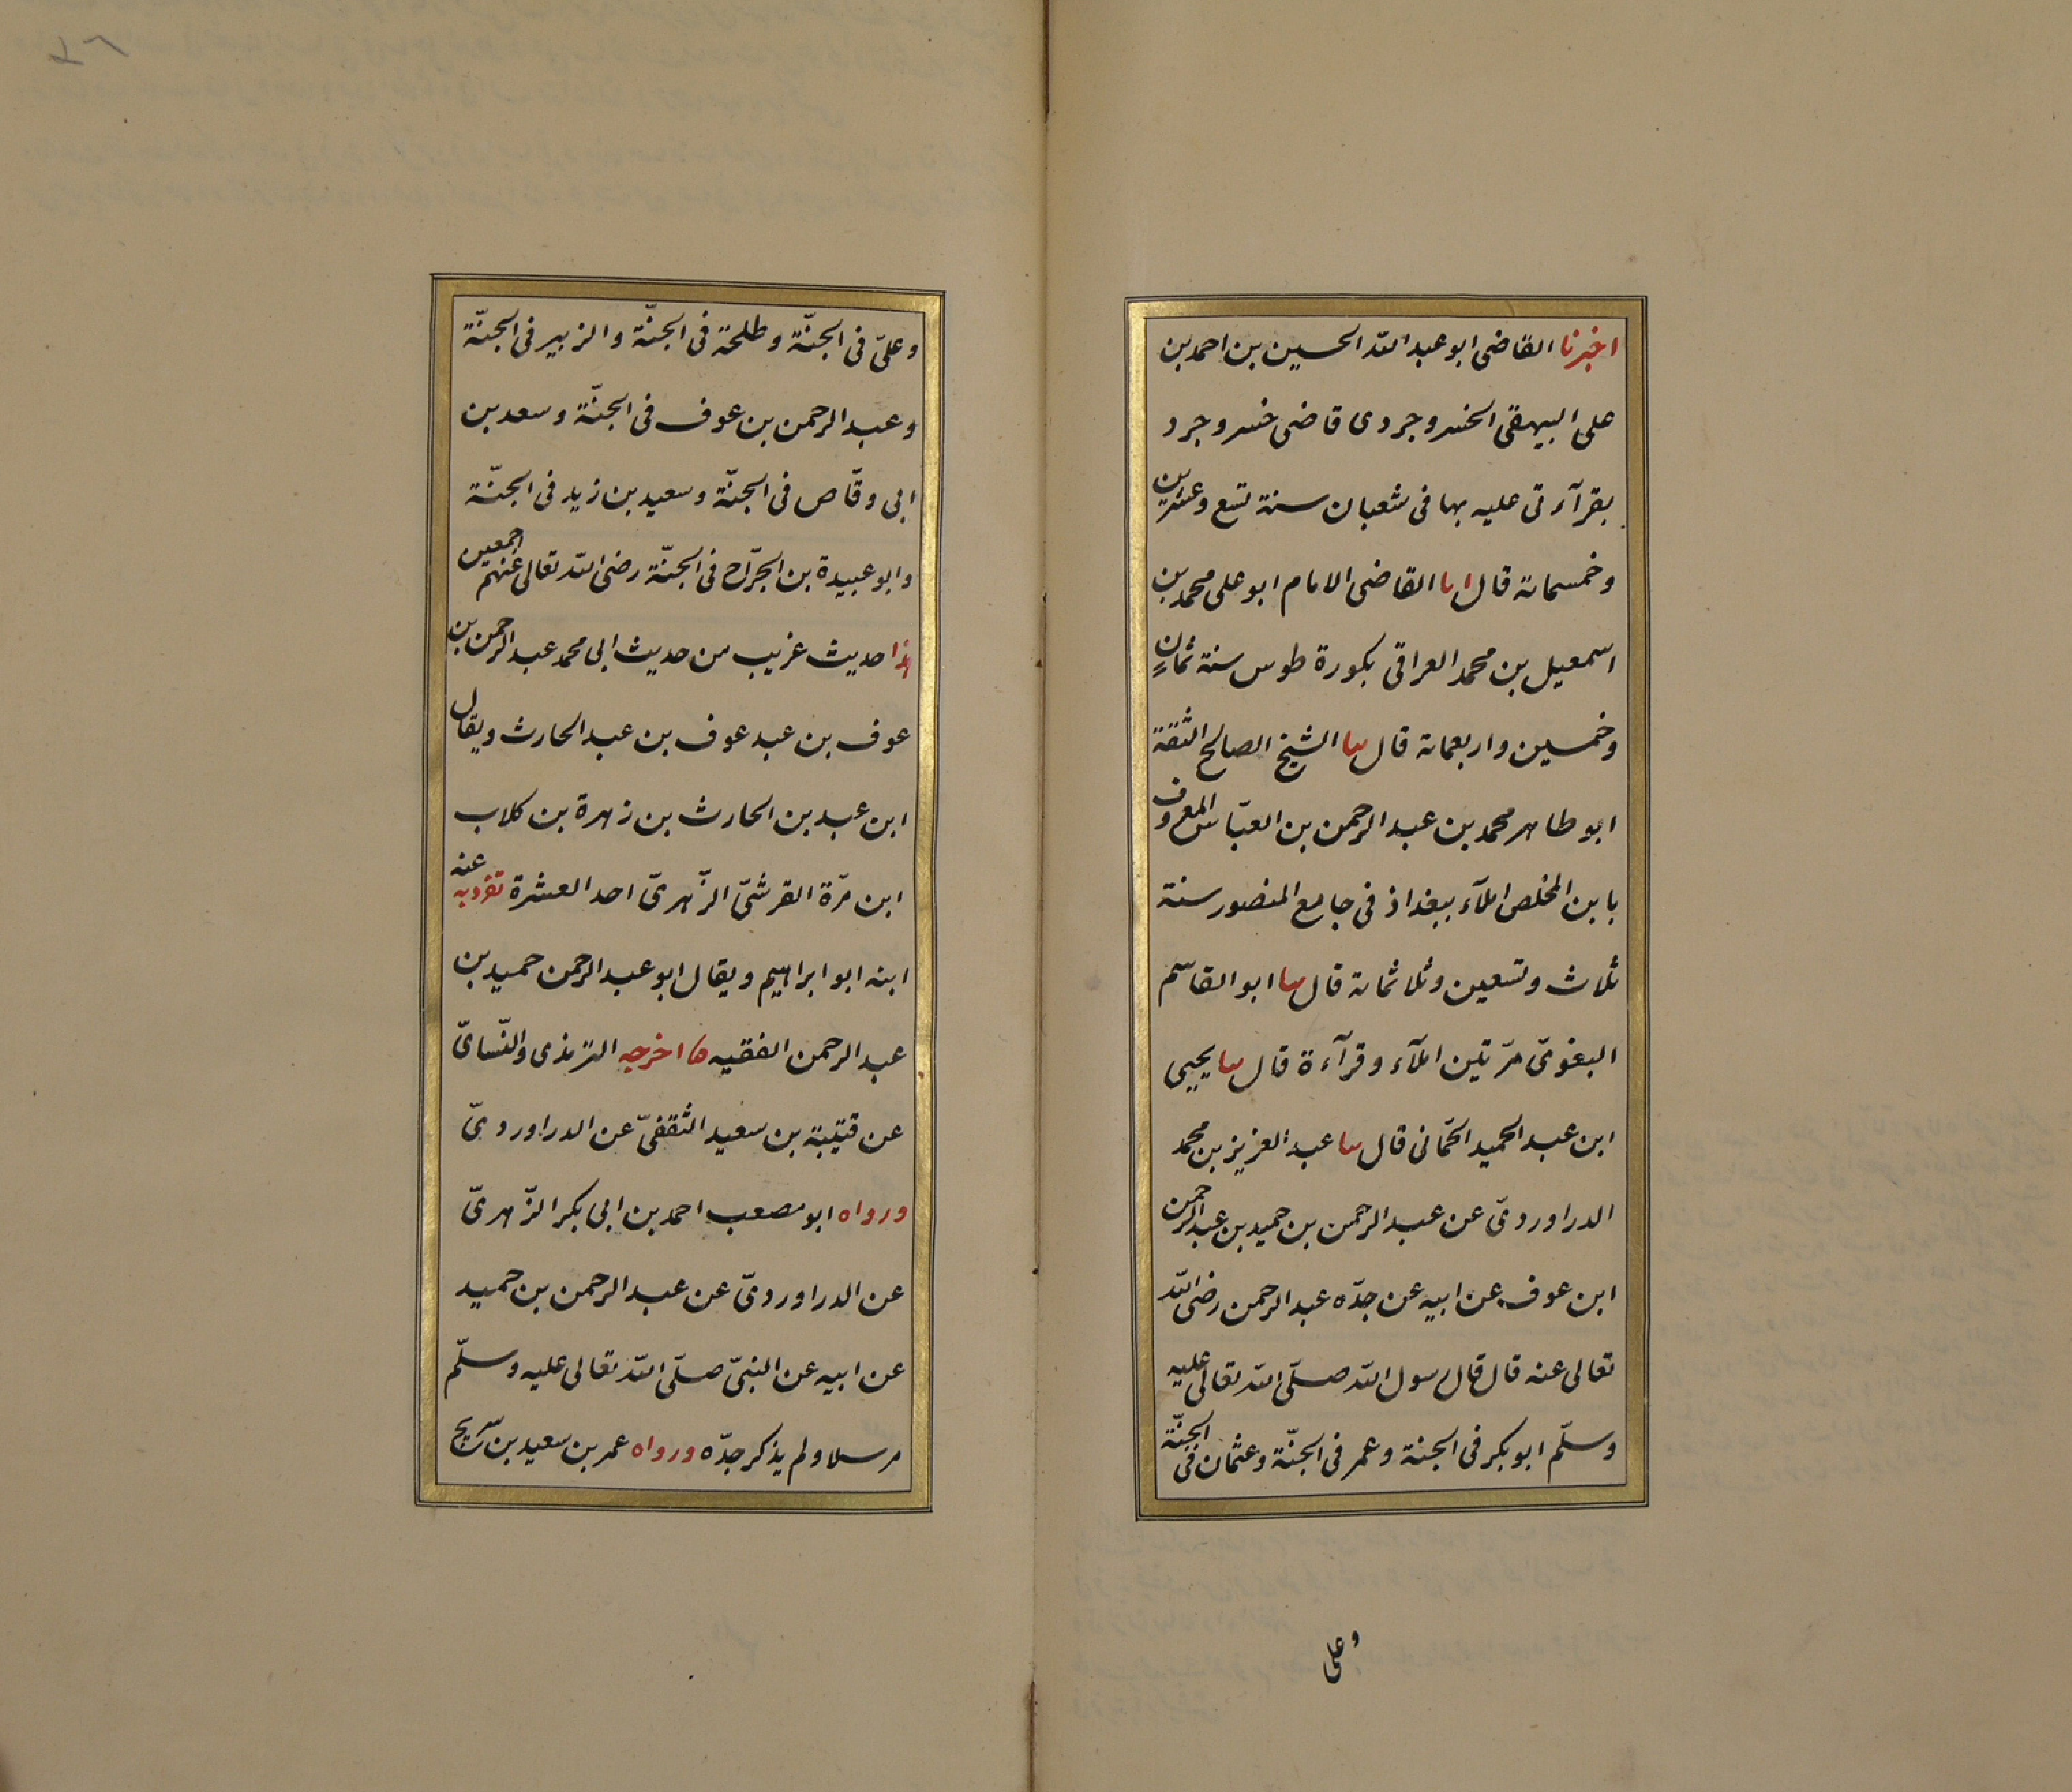 اخبرنا القاضى ابو عبد الله الحسين بن احمد بن
على البيهقى الخسروجردى قاضى خسروجرد
بقرآءتى عليه بها فى شعبان سنة تسع وعشرين
وخمسماىة قال اىا القاضى الامام ابو على محمد بن
اسمعيل بن محمد العراقى بكورة طوس سنة ثمانٍ
وخمسين واربعماىة قال ىىا الشيخ الصالح الثقة
ابو طاهر محمد بن عبد الرحمن بن العبّاس المعروف
بابن المخلص املآء ببغداذ فى جامع المنصور سنة
ثلاث وتسعين وثلاثماىة قال ىىا ابو القاسم
البغوىّ مرّتين املآء وقرآءة قال ىىا يحيى
ابن عبد الحميد الحمّانى قال ىىا عبد العزيز بن محمد
الدراوردىّ عن عبد الرحمن بن حميد بن عبد الرحمن
ابن عوف عن ابيه عن جدّه عبد الرحمن رضى الله
تعالى عنه قال قال رسول الله صلّى الله تعالى عليه
وسلّم ابو بكر فى الجنة وعمر فى الجنّة وعثمان فى الجنّة
وعلى
وعلىّ فى الجنّة وطلحة فى الجنّة والزبير فى الجنّة
وعبد الرحمن بن عوف فى الجنّة وسعد بن
ابى وقّاص فى الجنّة وسعيد بن زيد فى الجنّة
وابو عبيدة بن الجرّاح فى الجنّة رضى الله تعالى عنهم اجمعين
هذا حديث غريب من حديث ابى محمد عبد الرحمن بن
عوف بن عبد عوف بن عبد الحارث ويقال
ابن عبد بن الحارث بن زهرة بن كلاب
ابن مرّة القرشىّ الزّهرىّ احد العشرة تفرد به عنه
ابنه ابو ابراهيم ويقال ابو عبد الرحمن حميد بن
عبد الرحمن الفقيه اخرجه الترمذى والنّساىىّ
عن قتيبة بن سعيد الثقفىّ عن الدراوردىّ
ورواه ابو مصعب احمد بن ابى بكر الزّهرىّ
عن الدراوردىّ عن عبد الرحمن بن حميد
عن ابيه عن النبىّ صلّى الله تعالى عليه وسلّم
مرسلا ولم يذكر جدّه ورواه عمر بن سعيد بن سريج